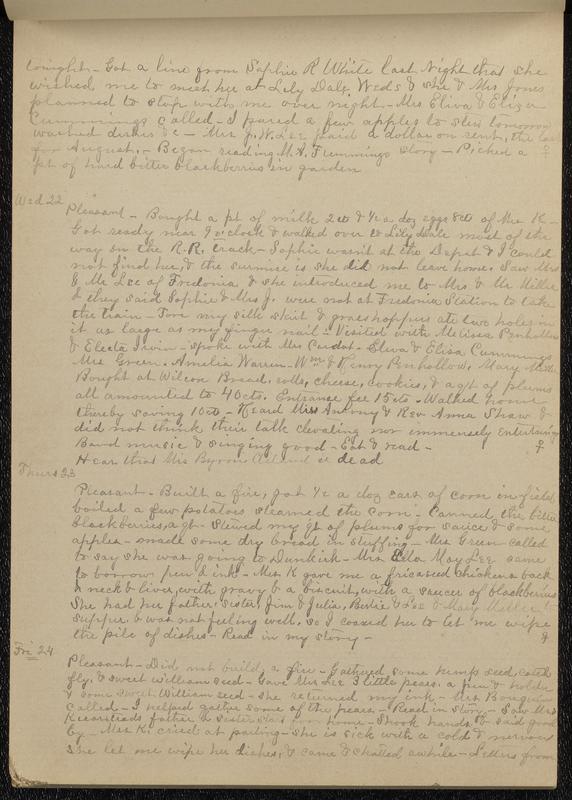 tonight - Got a line from Sophie R White last Night that she
wished me to meet her at Lily Dale Weds & she & Mrs Jones
planned to stop with me over night - Mrs Eliva & Eliza
Cummings called - I pared a few apples to stew tomorrow
washed dishes &c - Mrs J. W. Lee paid a dollar on rent, the last
for August, - Began reading M. A. story - Picked a
pt of bitter blackberries in garden
Wed 22
Pleasant - Bought a pt of milk 2cts & 1/2 a doz eggs 8cts of Mrs K -
Got ready near 9 o'clock & walked over to Lily Dale most of the
way on the R.R. track - Sophie wasn't at the Depot & I could
not find her, & the surmise is she did not leave home. Saw Mrs
& Mr Lee of Fredonia & she introduced me to Mrs & Mr Miller
& they said Sophie & Mrs J. were not at Fredonia Station to take
the train - Tore my silk skirt & grasshoppers ate two holes in
it as large as my finger nail - Visited with Melissa Penhollow
& Electa Irwin - Spoke with Mrs Cardot - Eliva & Eliza Cummings
Mrs Green - Amelia Warren - Wm & Henry Penhollow, Mary
Bought at Wilcox Bread, rolls, cheese, cookies, & a qt of plums
all amounted to 40cts. Entrance fee 15cts - Walked home
thereby saving 10cts - Heard Miss Antony & Rev Anna Shaw &
did not think their talk elevating nor immensely entertaining
Band music & singing good - Eat & read -
Hear that Mrs Byron is dead
Thurs 23
Pleasant - Built a fire, got 1/2 a doz ears of corn in field,
boiled a few potatoes steamed the corn - Canned the bitter
blackberries, a qt - Stewed my qt of plums for sauce & some
apples - made some dry bread in stuffing - Mrs Green called
to say she was going to Dunkirk - Mrs Ella May Lee came
to borrow pen & ink - Mrs K gave me a fricaseed chickens back
& neck & liver, with gravy & a biscuit, with a saucer of blackberries
She had her father, sister, Jim & Julia, Bertie & Lee & Mary Miller to
supper & was not feeling well, so I coaxed her to let me wipe
the pile of dishes - Read in my story -
Fri 24
Pleasant - Did not build a fire - Gathered some hemp seed, catch
fly, & sweet william seed - Gave Mrs Lee 3 little pears, a pen & holder
& some sweet William seed - She returned my ink - Mrs
called - I helped gather some of the pears - Read in story - Saw Mrs
father & sister start home - Shook hands & said good
by - Mrs K. cried at parting - she is sick with a cold & nervous
She let me wipe her dishes, & came & chatted awhile - Letters from